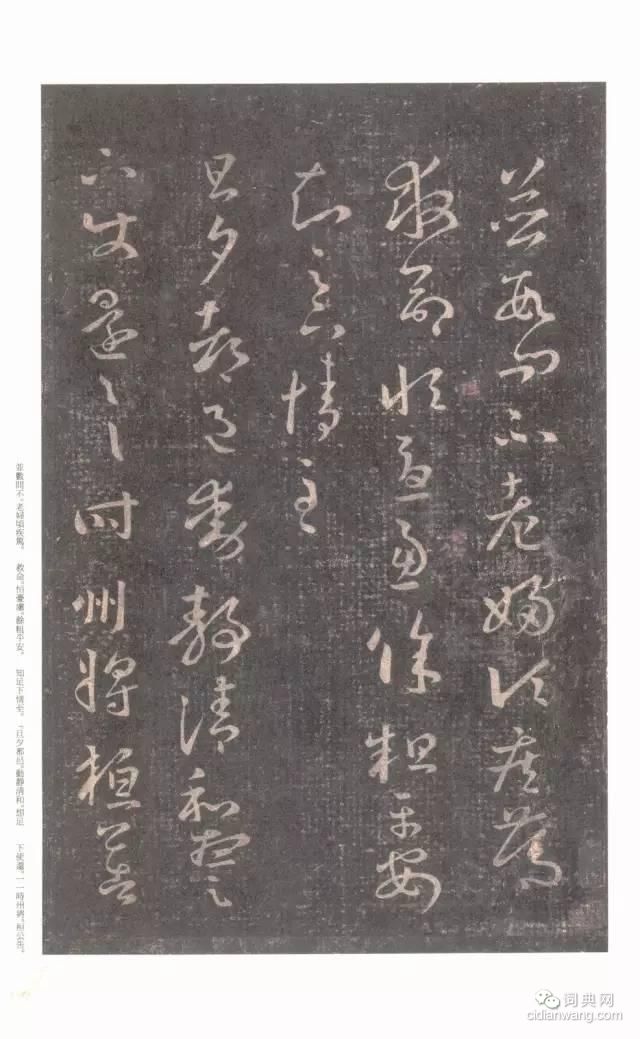 並數問不老婦頃疾篤
救命恒憂慮餘粗平安
知足下情至
旦夕都邑動靜清和想足
下使還一一時州將桓公告
並數問不。老婦頃疾篤。 救命。恒憂慮。餘粗平安。 知足下情至。「旦夕都邑。動靜清和。想足 下使還。一一時州將。桓公告。
词典网
cidianwang.com